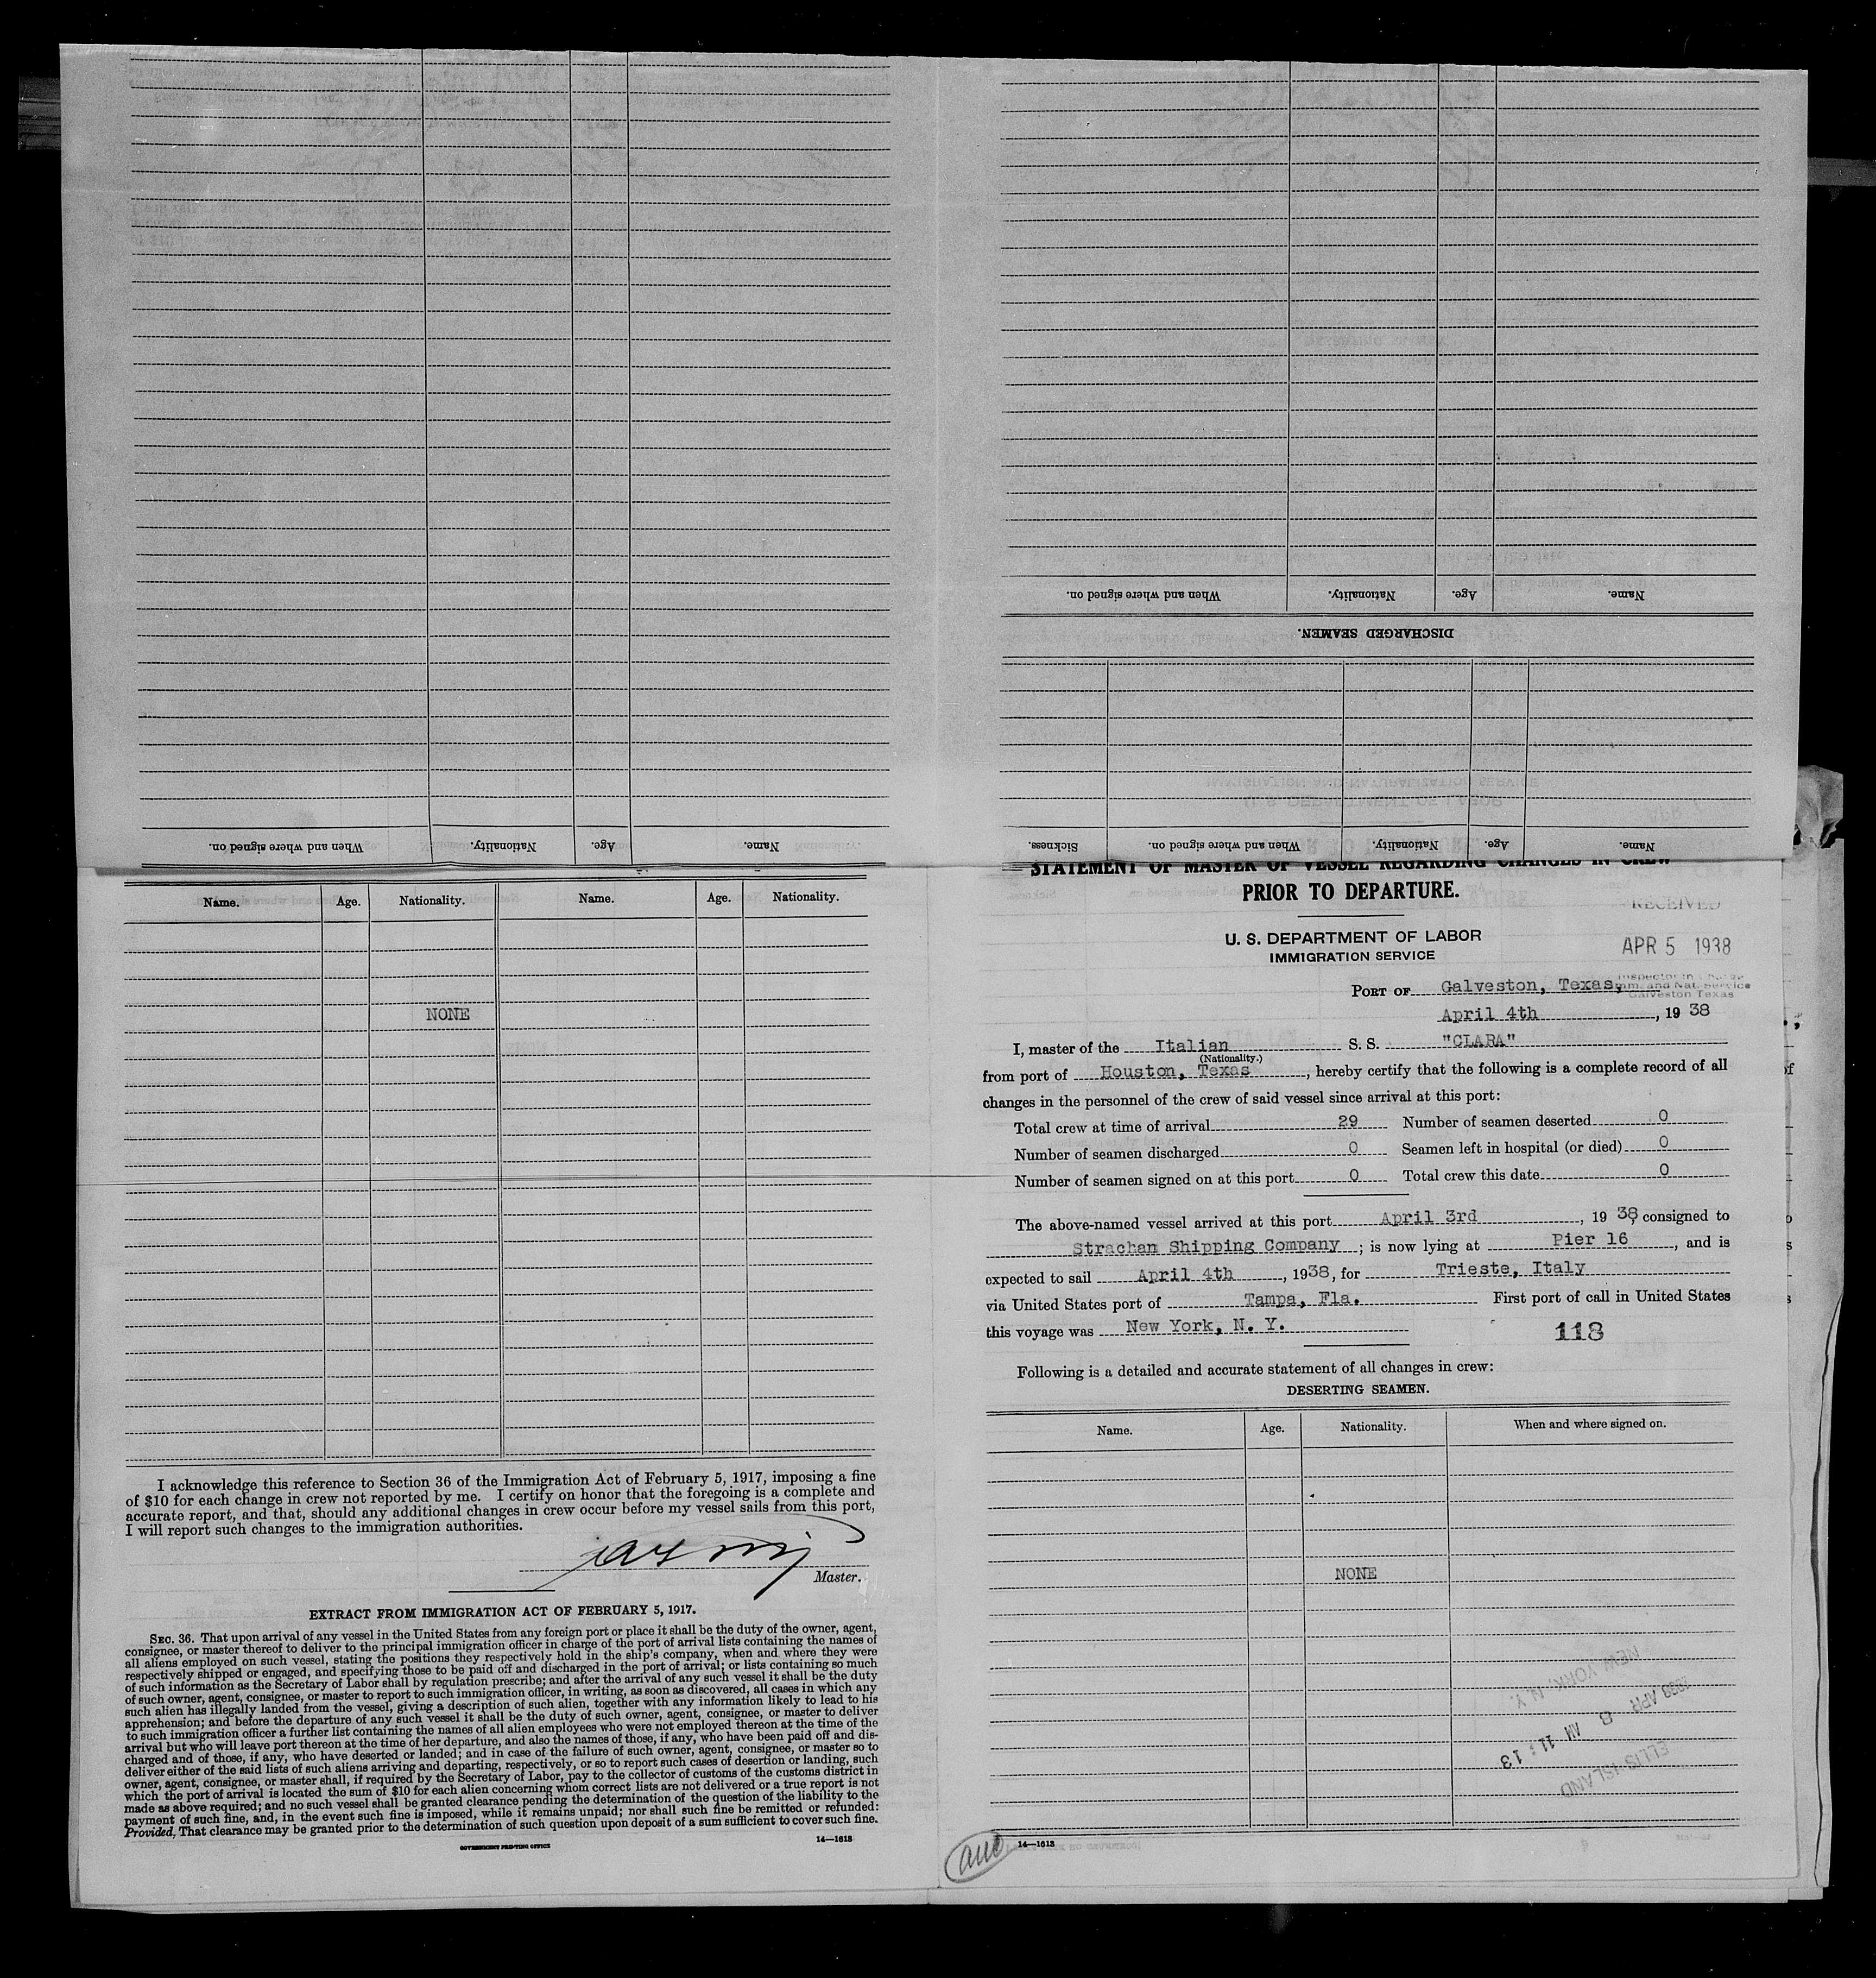 When and where signed on.
Nationality.
Age.
Name.
When and where signed on.
Nationality.
Age.
Name.
DISCHARGED SEAMEN.
Sickness.
When and where signed on.
Nationality.
Age.
Name.
Name. Age. Nationality. Name. Age. Nationality.
NONE
I acknowledge this reference to Section 36 of the Immigration Act of February 5, 1917, imposing a fine
of $10 for each change in crew not reported by me. I certify on honor that the foregoing is a complete and
accurate report, and that, should any additional changes in crew occur before my vessel sails from this port,
I will report such changes to the immigration authorities.
Master.
EXTRACT FROM IMMIGRATION ACT OF FEBRUARY 5, 1917.
SEC. 36. That upon arrival of any vessel in the United States from any foreign port or place it shall be the duty of the owner, agent,
consignee, or master thereof to deliver to the principal immigration officer in charge of the port of arrival lists containing the names of
all aliens employed on such vessel, stating the positions they respectively hold in the ship's company, when and where they were
respectively shipped or engaged, and specifying those to be paid off and discharged in the port of arrival; or lists containing so much
of such information as the Secretary of Labor shall by regulation prescribe; and after the arrival of any such vessel it shall be the duty
of such owner, agent, consignee, or master to report to such immigration officer, in writing, as soon as discovered, all cases in which any
such alien has illegally landed from the vessel, giving a description of such alien, together with any information likely to lead to his
apprehension; and before the departure of any such vessel it shall be the duty of such owner, agent, consignee, or master to deliver
to such immigration officer a further list containing the names of all alien employees who were not employed thereon at the time of the
arrival but who will leave port thereon at the time of her departure, and also the names of those, if any, who have been paid off and dis-
charged and of those, if any, who have deserted or landed; and in case of the failure of such owner, agent, consignee, or master so to
deliver either of the said lists of such aliens arriving and departing, respectively, or so to report such cases of desertion or landing, such
owner, agent, consignee, or master shall, if required by the Secretary of Labor, pay to the collector of customs of the customs district in
which the port of arrival is located the sum of $10 for each alien concerning whom correct lists are not delivered or a true report is not
made as above required; and no such vessel shall be granted clearance pending the determination of the question of the liability to the
payment of such fine, and, in the event such fine is imposed, while it remains unpaid; nor shall such fine be remitted or refunded:
Provided, That clearance may be granted prior to the determination of such question upon deposit of a sum sufficient to cover such fine.
GOVERNMENT PRINTING OFFICE 14—1613
STATEMENT OF MASTER OF VESSEL REGARDING CHANGES IN CREW
PRIOR TO DEPARTURE.
RECEIVED
APR 5 1938
Inspector in Charge
Imm. and Nat. Service
Galveston Texas
U. S. DEPARTMENT OF LABOR
IMMIGRATION SERVICE
PORT OF Galveston, Texas,
April 4th, 1938
I, master of the Italian S. S. "CLARA"
(Nationality.)
from port of Houston, Texas, hereby certify that the following is a complete record of all
changes in the personnel of the crew of said vessel since arrival at this port:
Total crew at time of arrival 29 Number of seamen deserted 0
Number of seamen discharged 0 Seamen left in hospital (or died) 0
Number of seamen signed on at this port 0 Total crew this date 0
The above-named vessel arrived at this port April 3rd, 1938, consigned to
Strachan Shipping Company; is now lying at Pier 16, and is
expected to sail April 4th, 1938, for Trieste, Italy
via United States port of Tampa, Fla. First port of call in United States
this voyage was New York, N. Y.
118
Following is a detailed and accurate statement of all changes in crew:
DESERTING SEAMEN.
Name. Age. Nationality. When and where signed on.
NONE
NEW YORK, N. Y.
1938 APR 8 AM 11:13
ELLIS ISLAND
14—1613